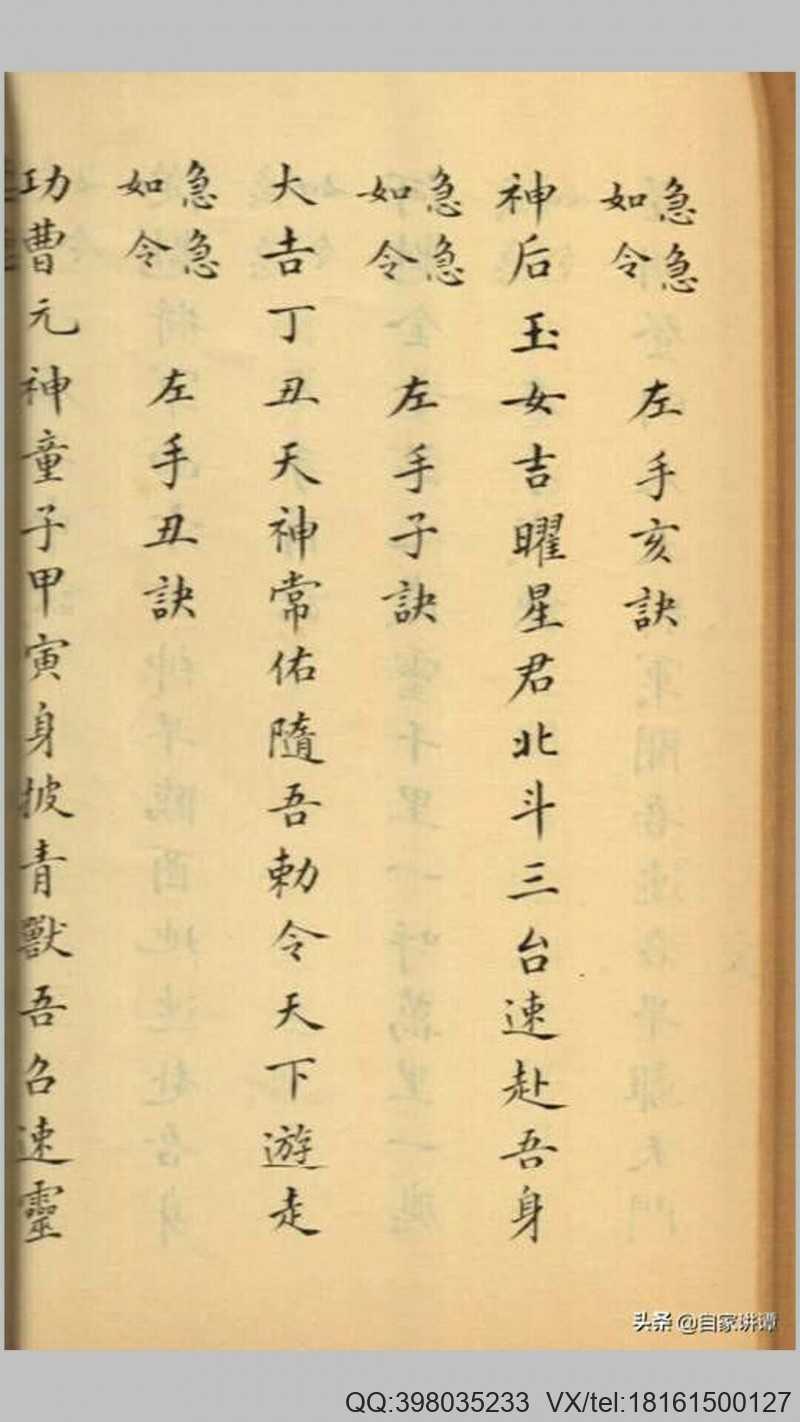 急急如令 左手亥訣
神后玉女吉曜星君北斗三台速赴吾身
急急如令 左手子訣
大吉丁丑天神常佑隨吾勅令天下遊走
急急如令 左手丑訣
功曹元神童子甲寅身披青獸吾召速靈
头条 @自家讲谭
QQ:398035233 VX/tel:18161500127